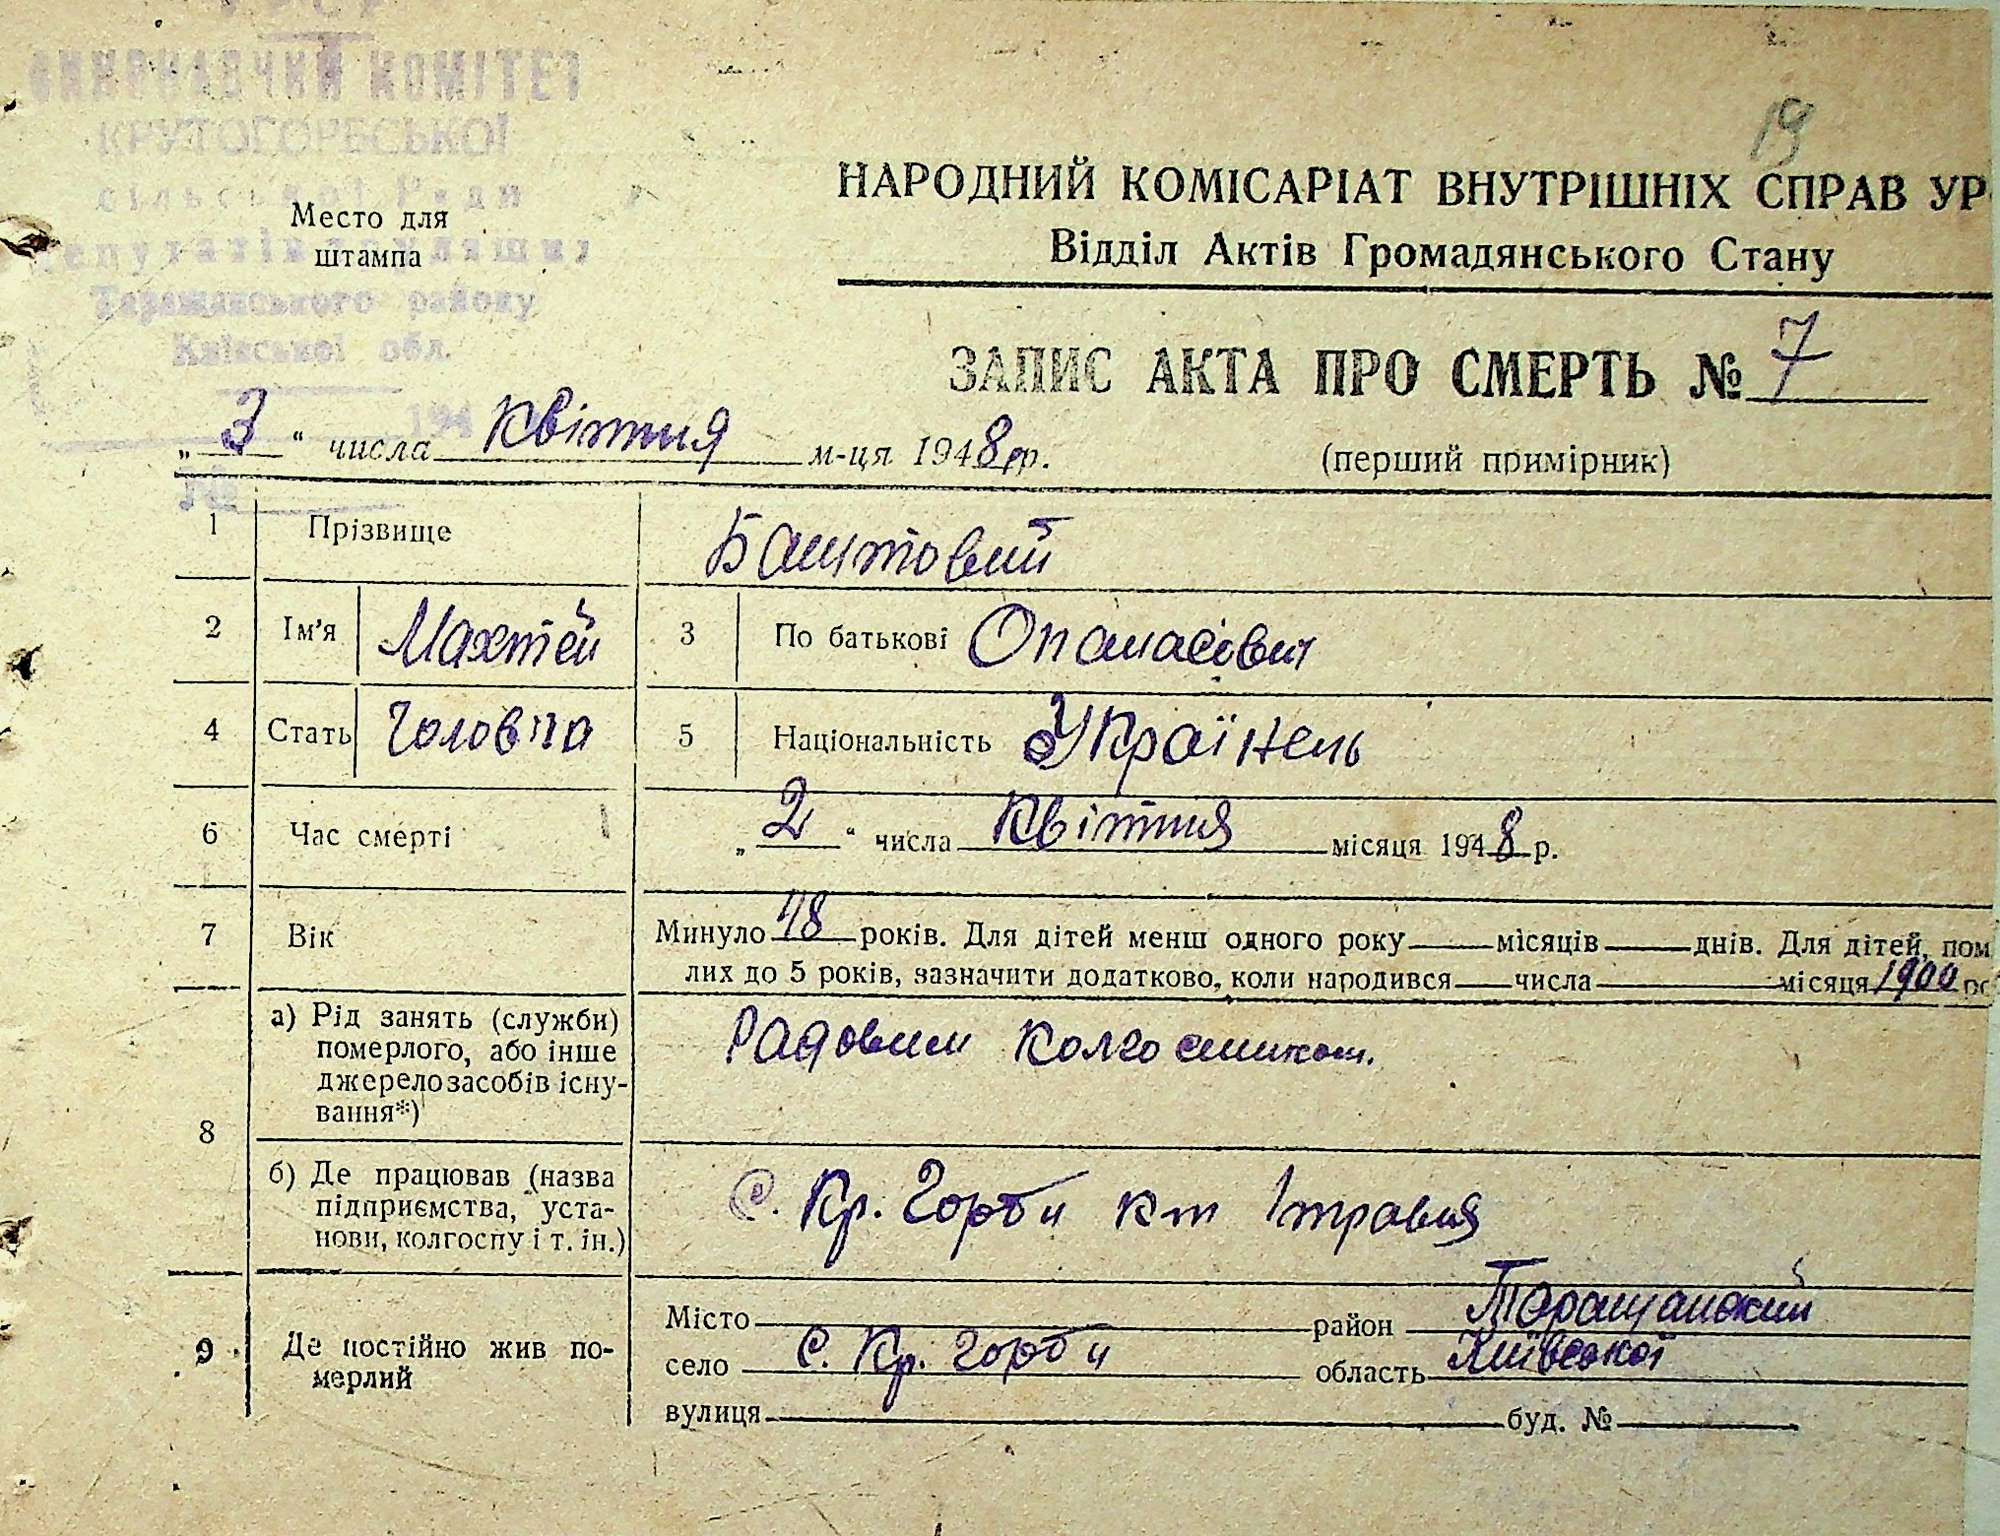 УРСР
ВИКОНАВЧИЙ КОМІТЕТ
КРУТОГОРБСЬКОЇ
сільської Ради
депутатів трудящих
Таращанського району
Київської обл.
194
№
Место для
штампа
19
НАРОДНИЙ КОМІСАРІАТ ВНУТРІШНІХ СПРАВ УР
Відділ Актів Громадянського Стану
ЗАПИС АКТА ПРО СМЕРТЬ № 7
„ 3 “ числа Квітня м-ця 1948 р.
(перший примірник)
1 Прізвище Баштовий
2 Ім'я Махтей 3 По батькові Опанасович
4 Стать Чоловіча 5 Національність Українець
6 Час смерті „ 2 “ числа Квітня місяця 1948 р.
7 Вік Минуло 48 років. Для дітей менш одного року місяців днів. Для дітей, пом
лих до 5 років, зазначити додатково, коли народився числа місяця 1900
8 а) Рід занять (служби)
померлого, або інше
джерело засобів існу-
вання*)
Радовим колгоспником.
б) Де працював (назва
підприємства, уста-
нови, колгоспу і т. ін.)
С. Кр. Горби к-т 1 травня
9 Де постійно жив по-
мерлий
Місто район Таращанский
село С. Кр. Горби область Київської
вулиця буд. №